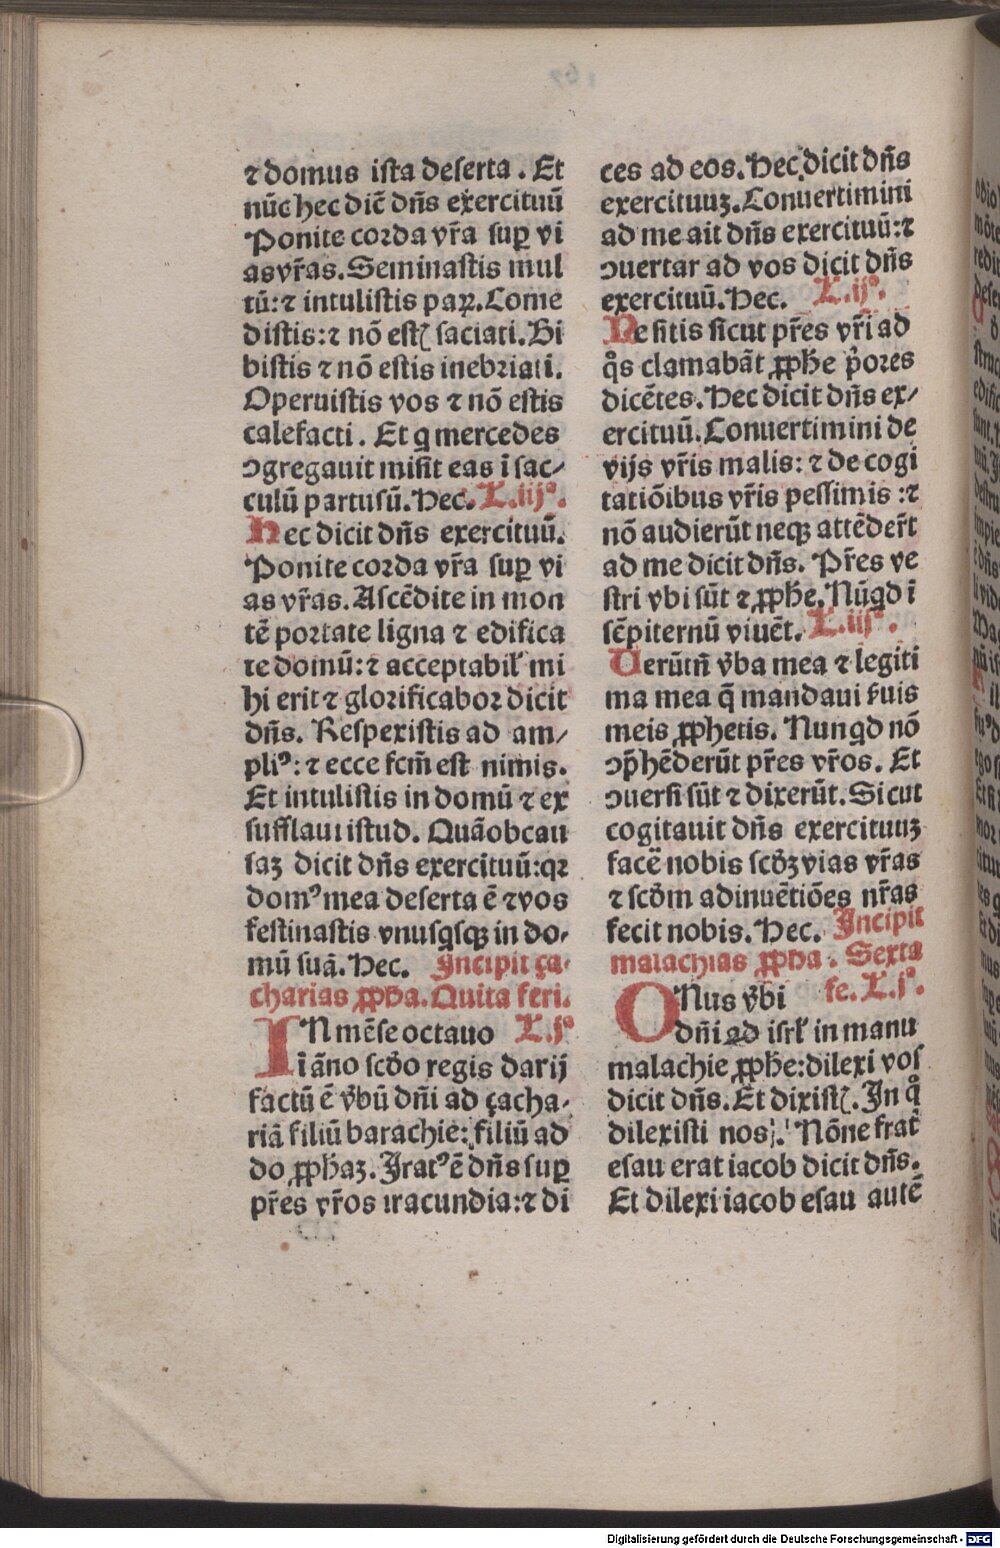 ⁊ domus ista deserta . Et
nūc hec dic̄ dn̄s exercituū
Ponite corda vr̄a suꝑ vi
as vr̄as. Seminastis mul
tū: ⁊ intulistis paꝝ. Come
distis: ⁊ nō est͛ saciati. Bi
bistis ⁊ nō estis inebriati.
Operuistis vos ⁊ nō estis
calefacti . Et q mercedes
ꝯgregauit misit eas ī sac⸗
culū partusū. Hec. L.iijº.
Hec dicit dn̄s exercituū.
Ponite corda vr̄a suꝑ vi
as vr̄as. Ascēdite in mon
tē portate ligna ⁊ edifica
te domū: ⁊ acceptabil̛ mi
hi erit ⁊ glorificabor dicit
dn̄s. Respexistis ad am⸗
pliꝰ: ⁊ ecce fcm̄ est nimis.
Et intulistis in domū ⁊ ex
sufflaui istud. Quāobcau
saꝫ dicit dn̄s exercituū: qꝛ
domꝰ mea deserta ē ⁊ vos
festinastis vnusqsqꝫ in do⸗
mū suā. Hec. Incipit ça⸗
charias ꝓph̄a. Quīta feri.
IN mēse octauo L.jº
ī āno scd̄o regis darij
factū ē v̄bū dn̄i ad çacha⸗
riā filiū barachie: filiū ad
do ꝓph̄aꝫ. Iratꝰ ē dn̄s suꝑ
pr̄es vr̄os iracundia: ⁊ di
ces ad eos. Hec dicit dn̄s
exercituuꝫ. Conuertimini
ad me ait dn̄s exercituū: ⁊
ꝯuertar ad vos dicit dn̄s
exercituū. Hec. L.ijº.
Ne sitis sicut pr̄es vr̄i ad
qͦs clamabāt ꝓph̄e p̄ores
dicētes. Hec dicit dn̄s ex⸗
ercituū. Conuertimini de
vijs vr̄is malis: ⁊ de cogi
tatiōibus vr̄is pessimis : ⁊
nō audierūt neqꝫ attēder̄t
ad me dicit dn̄s. Pr̄es ve
stri vbi sūt ⁊ ꝓph̄e. Nūqd ī
sēpiternū viuēt. L.iijº.
Uerūtn̄ v̄ba mea ⁊ legiti
ma mea q̄ mandaui s̛uis
meis ꝓphetis. Nunqd nō
ꝯp̄hēderūt pr̄es vr̄os. Et
ꝯuersi sūt ⁊ dixerūt. Sicut
cogitauit dn̄s exercituuꝫ
facē nobis scd̄ꝫ vias vr̄as
⁊ scd̄m adinuētiōes nr̄as
fecit nobis. Hec. Incipit
malachias ꝓph̄a . Sexta
fe. L.jº.
ONus v̄bi
dn̄i ad isrl̛ in manu
malachie ꝓph̄e: dilexi vos
dicit dn̄s. Et dixist͛. In qͦ
dilexisti nos. Nōne frat̛
esau erat iacob dicit dn̄s.
Et dilexi iacob esau autē
Digitalisierung gefördert durch die Deutsche Forschungsgemeinschaft - DFG